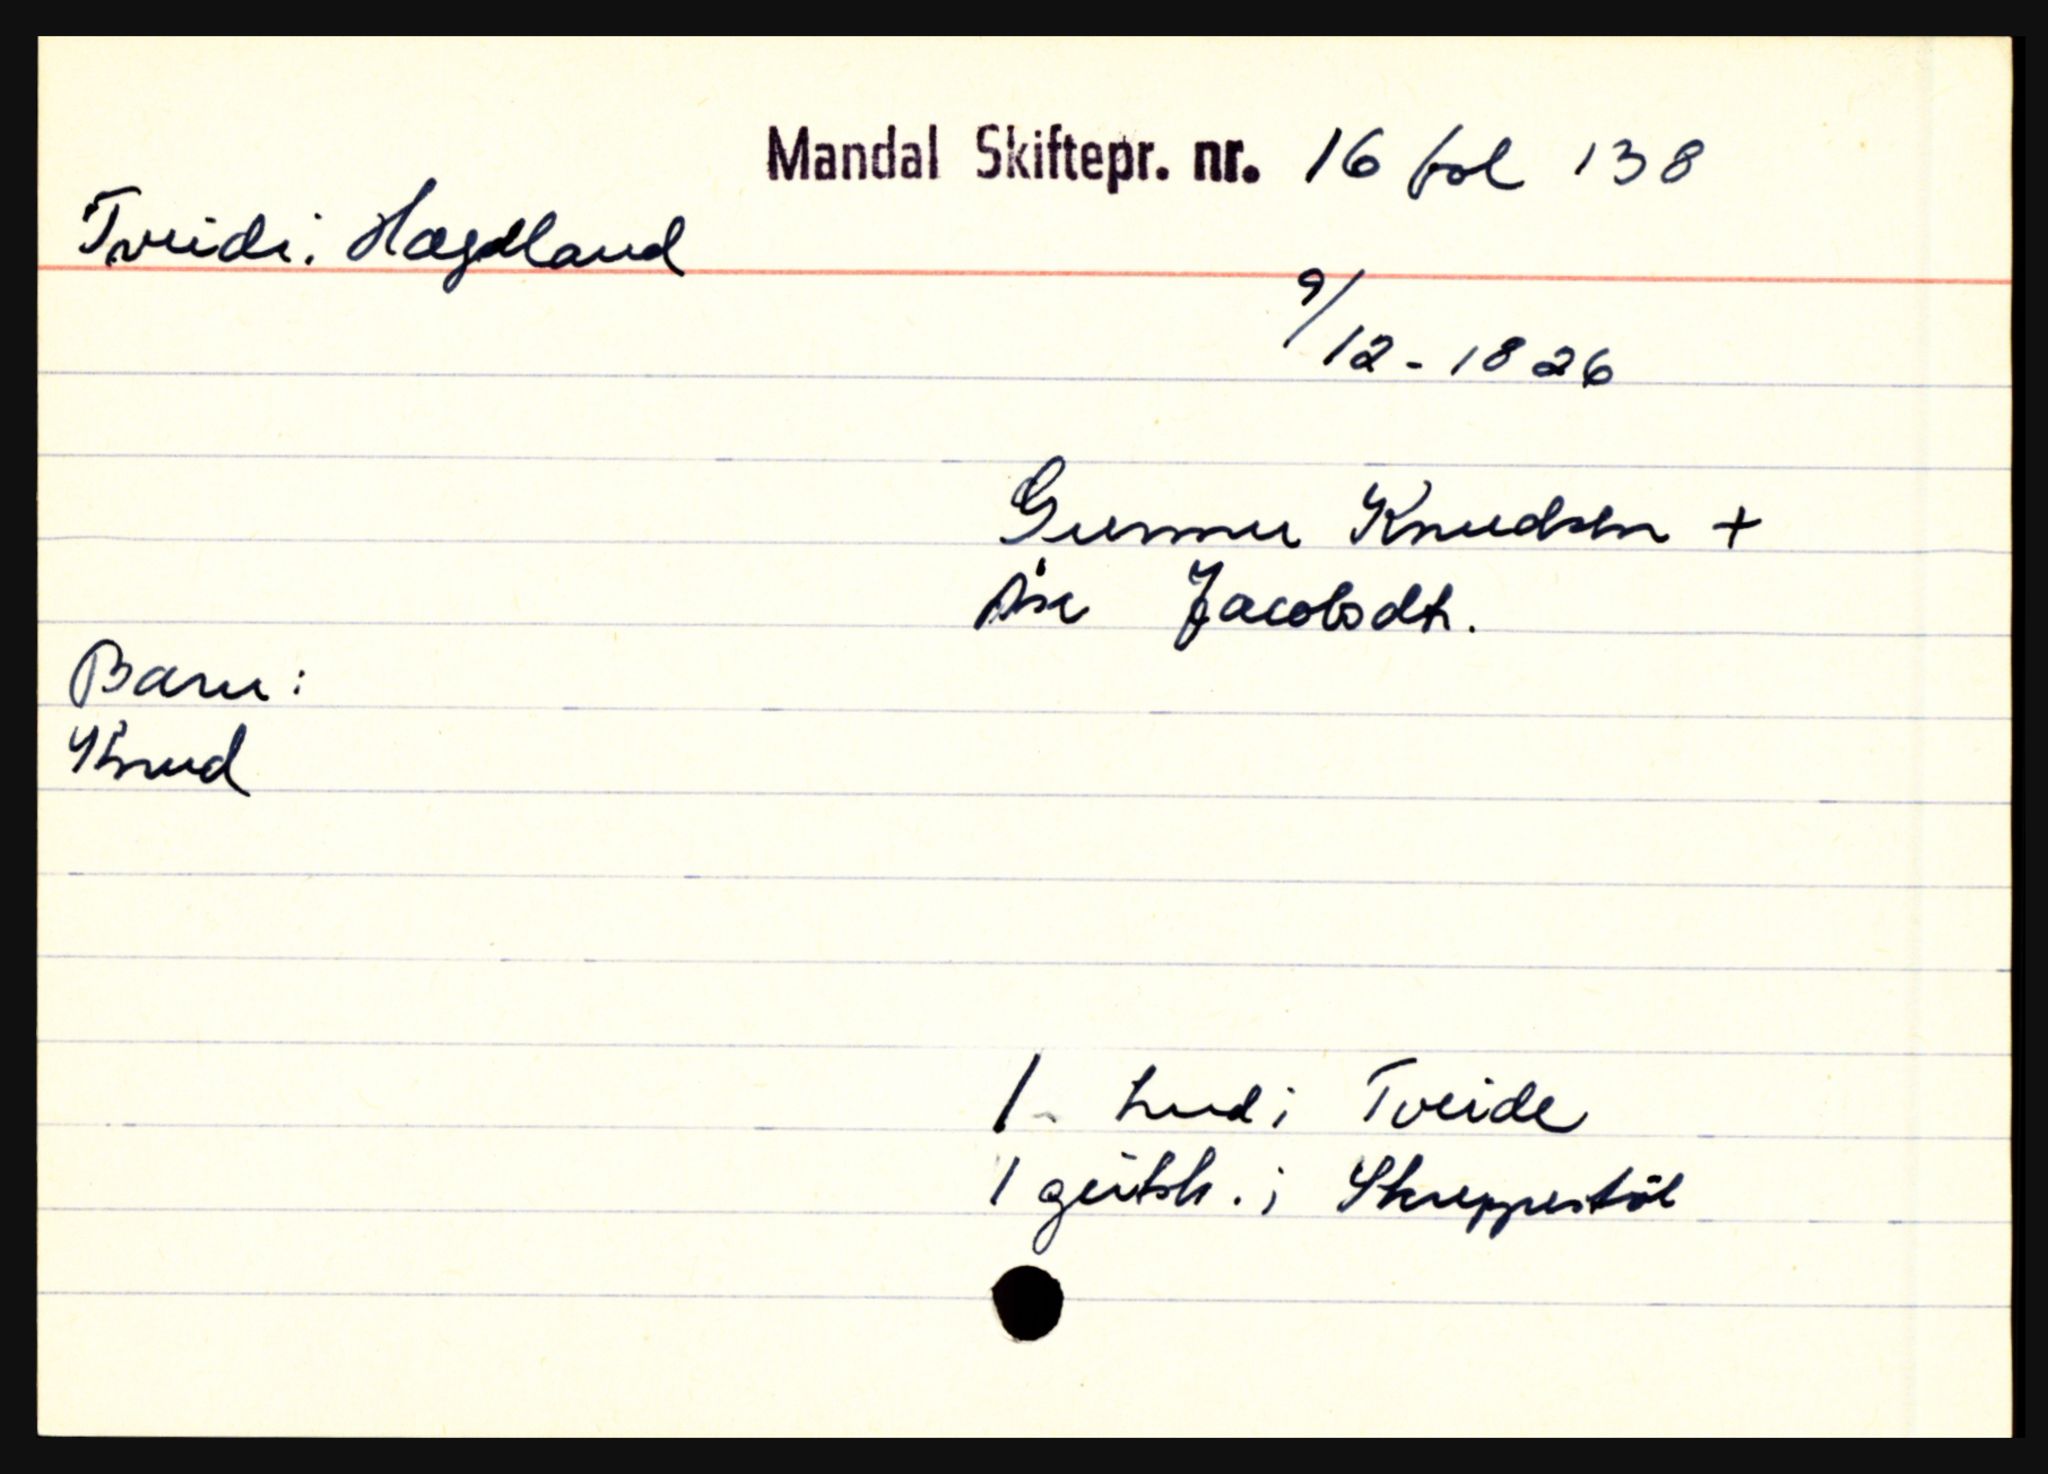 Mandal Skiftepr. nr. 16 fol 138
Tveide i Hægeland
9/12-1826
Gunner Knudsen +
Åse Jacobsdt.
Barn:
Knud
1 hud i Tveide
1 geitsk. i Skreppestøl